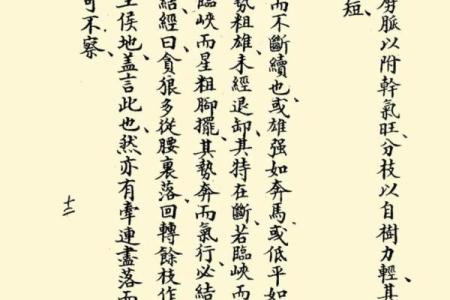 脈以附幹氣旺、分枝以自樹力輕、其
短、
而不斷續也、或雄强如奔馬、或低平如
勢粗雄、未經退卸、其特在斷、若臨峽而
臨峽而星粗腳擺、其勢奔而氣行、必結
結經曰、貪狼多從腰裏落、回轉餘枝作
王侯地、蓋言此也、然亦有牽連盡落而
可不察、
十二